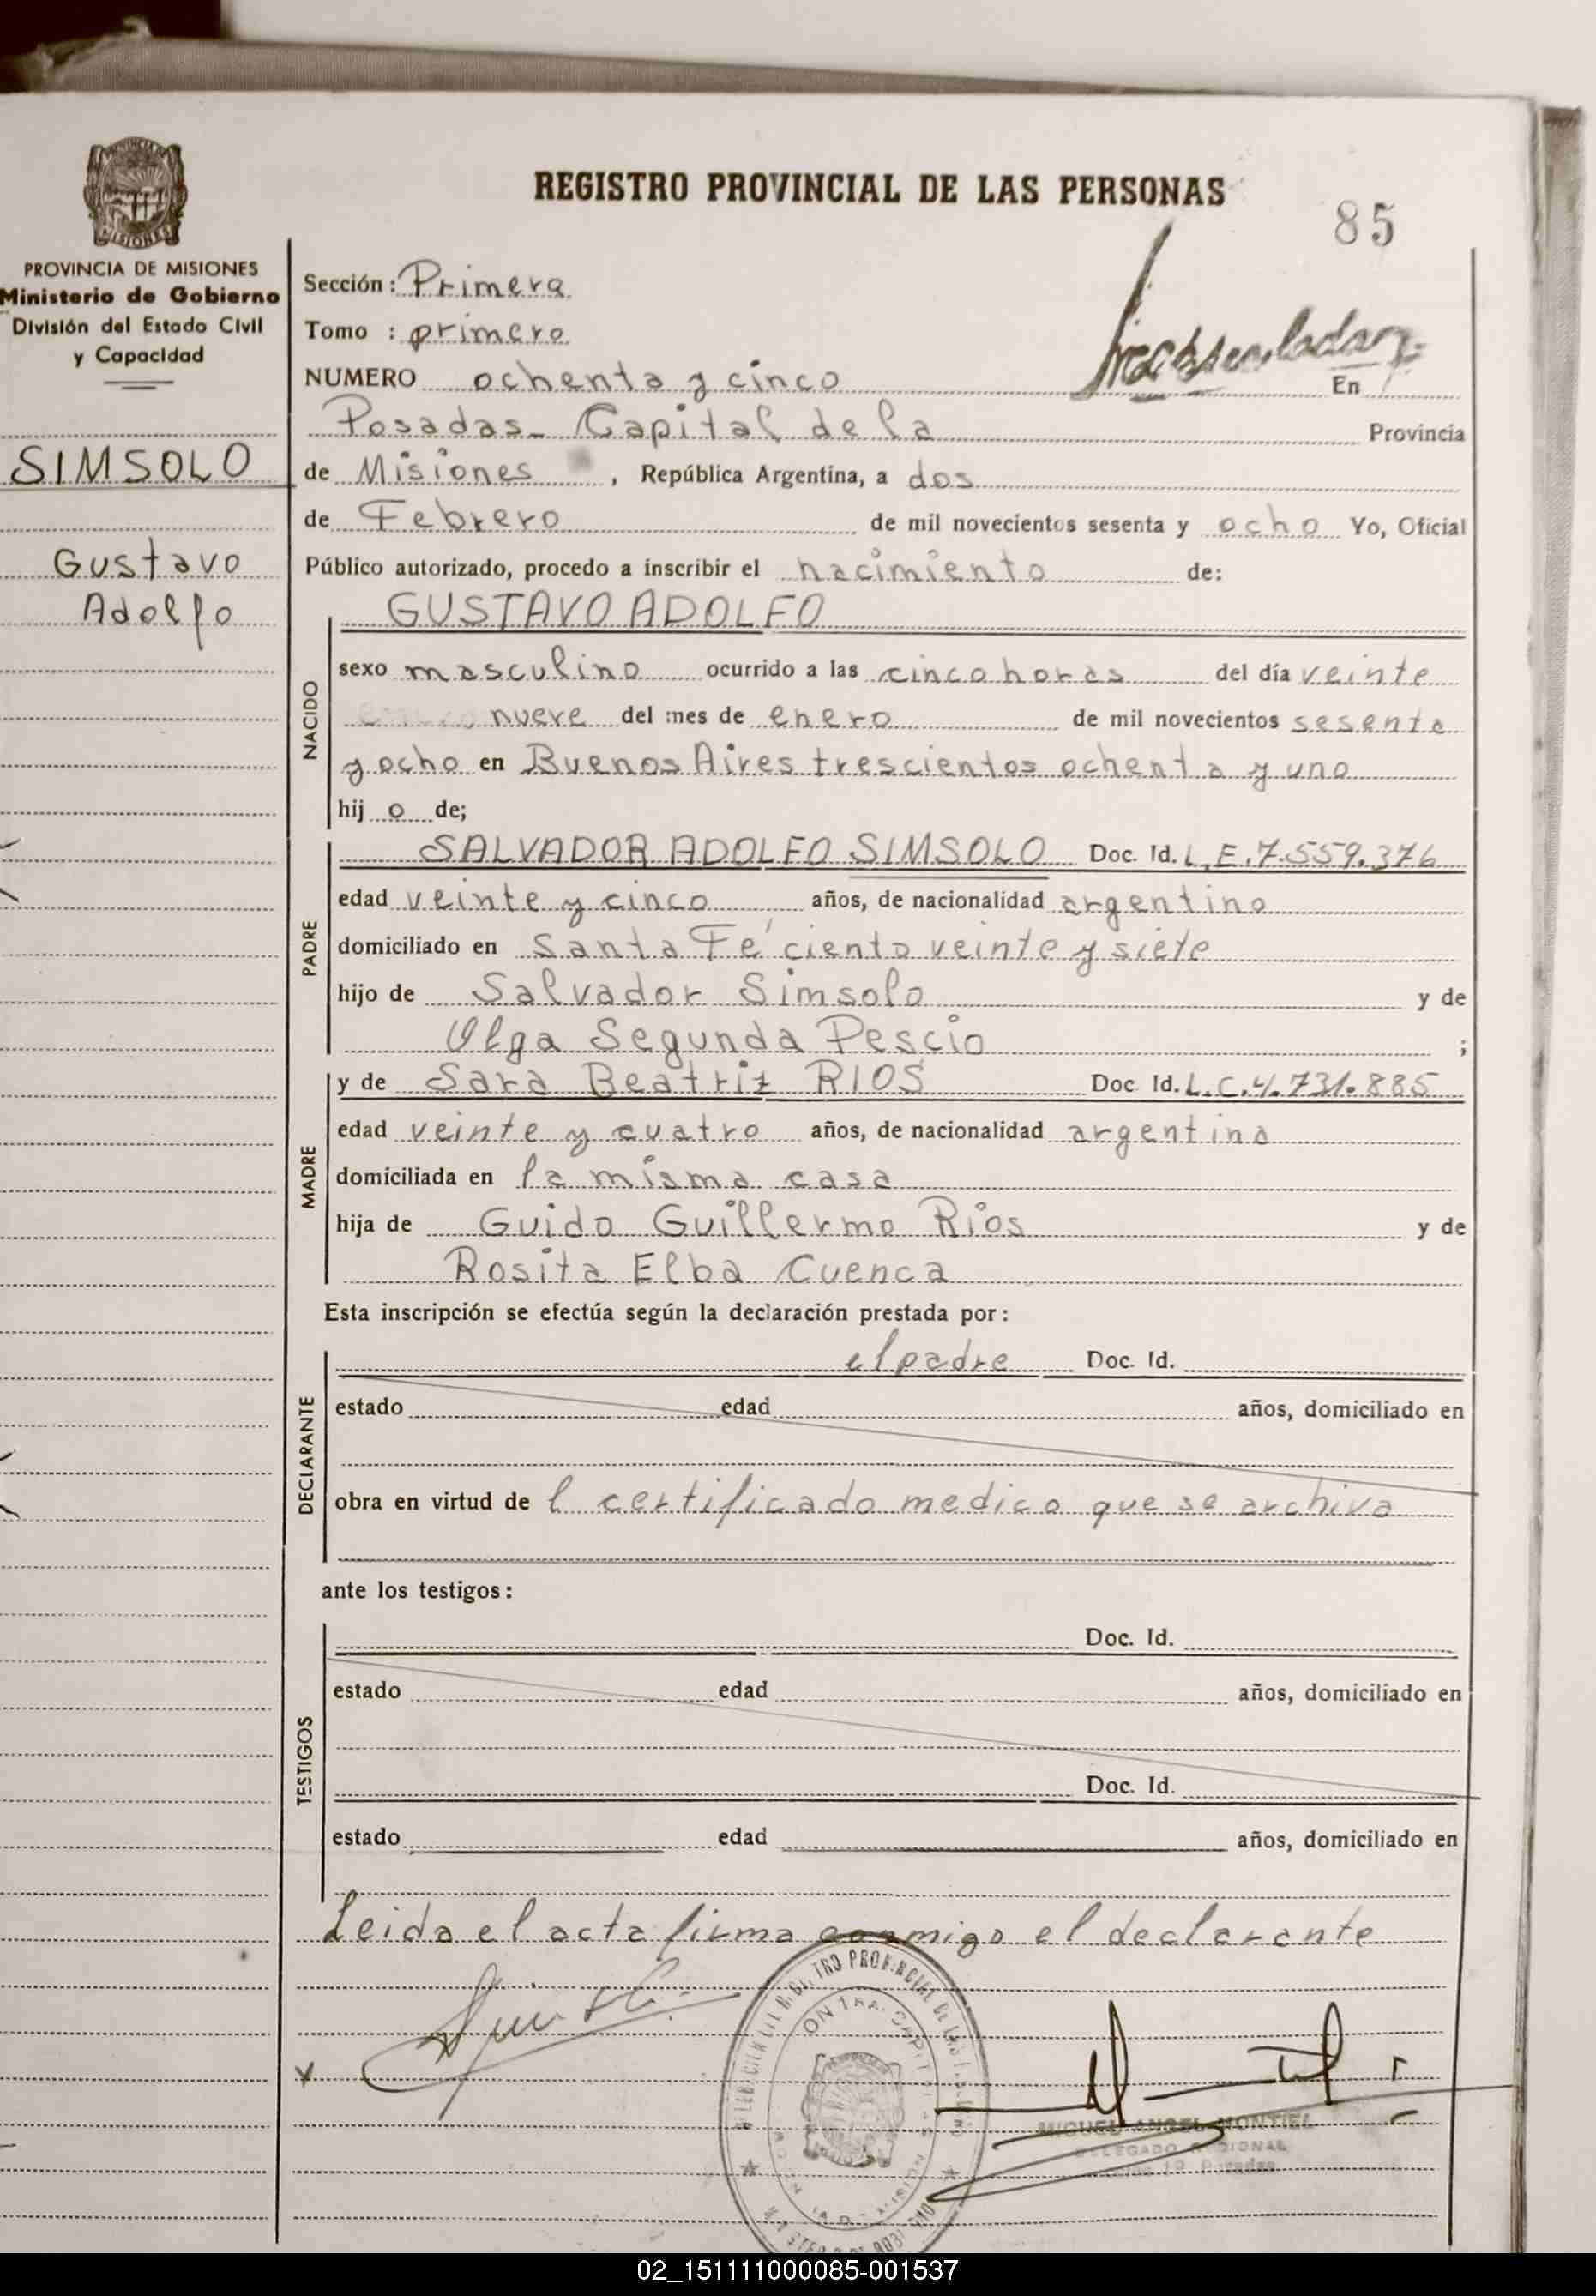 REGISTRO PROVINCIAL DE LAS PERSONAS
85
MISIONES
PROVINCIA DE MISIONES
Ministerio de Gobierno
División del Estado Civil
y Capacidad
SIMSOLO
Gustavo
Adolfo
Sección: Primera
Tomo : primero
NUMERO ochenta y cinco En
Posadas - Capital de la Provincia
de Misiones , República Argentina, a dos
de Febrero de mil novecientos sesenta y ocho Yo, Oficial
Público autorizado, procedo a inscribir el nacimiento de:
NACIDO
GUSTAVO ADOLFO
sexo masculino ocurrido a las cinco horas del día veinte
nueve del mes de enero de mil novecientos sesenta
y ocho en Buenos Aires trescientos ochenta y uno
hij o de;
PADRE
SALVADOR ADOLFO SIMSOLO Doc. Id. L.E.7.559.376
edad veinte y cinco años, de nacionalidad argentino
domiciliado en Santa Fé ciento veinte y siete
hijo de Salvador Simsolo y de
Olga Segunda Pescio ;
MADRE
y de Sara Beatriz RIOS Doc Id. L.C.4.731.885
edad veinte y cuatro años, de nacionalidad argentina
domiciliada en la misma casa
hija de Guido Guillermo Rios y de
Rosita Elba Cuenca
Esta inscripción se efectúa según la declaración prestada por:
DECLARANTE
el padre Doc. Id.
estado edad años, domiciliado en
obra en virtud de l certificado medico que se archiva
ante los testigos:
TESTIGOS
Doc. Id.
estado edad años, domiciliado en
Doc. Id.
estado edad años, domiciliado en
Leida el acta firma conmigo el declarante
MIGUEL ANGEL MONTIEL
DELEGADO REGIONAL
02_151111000085-001537